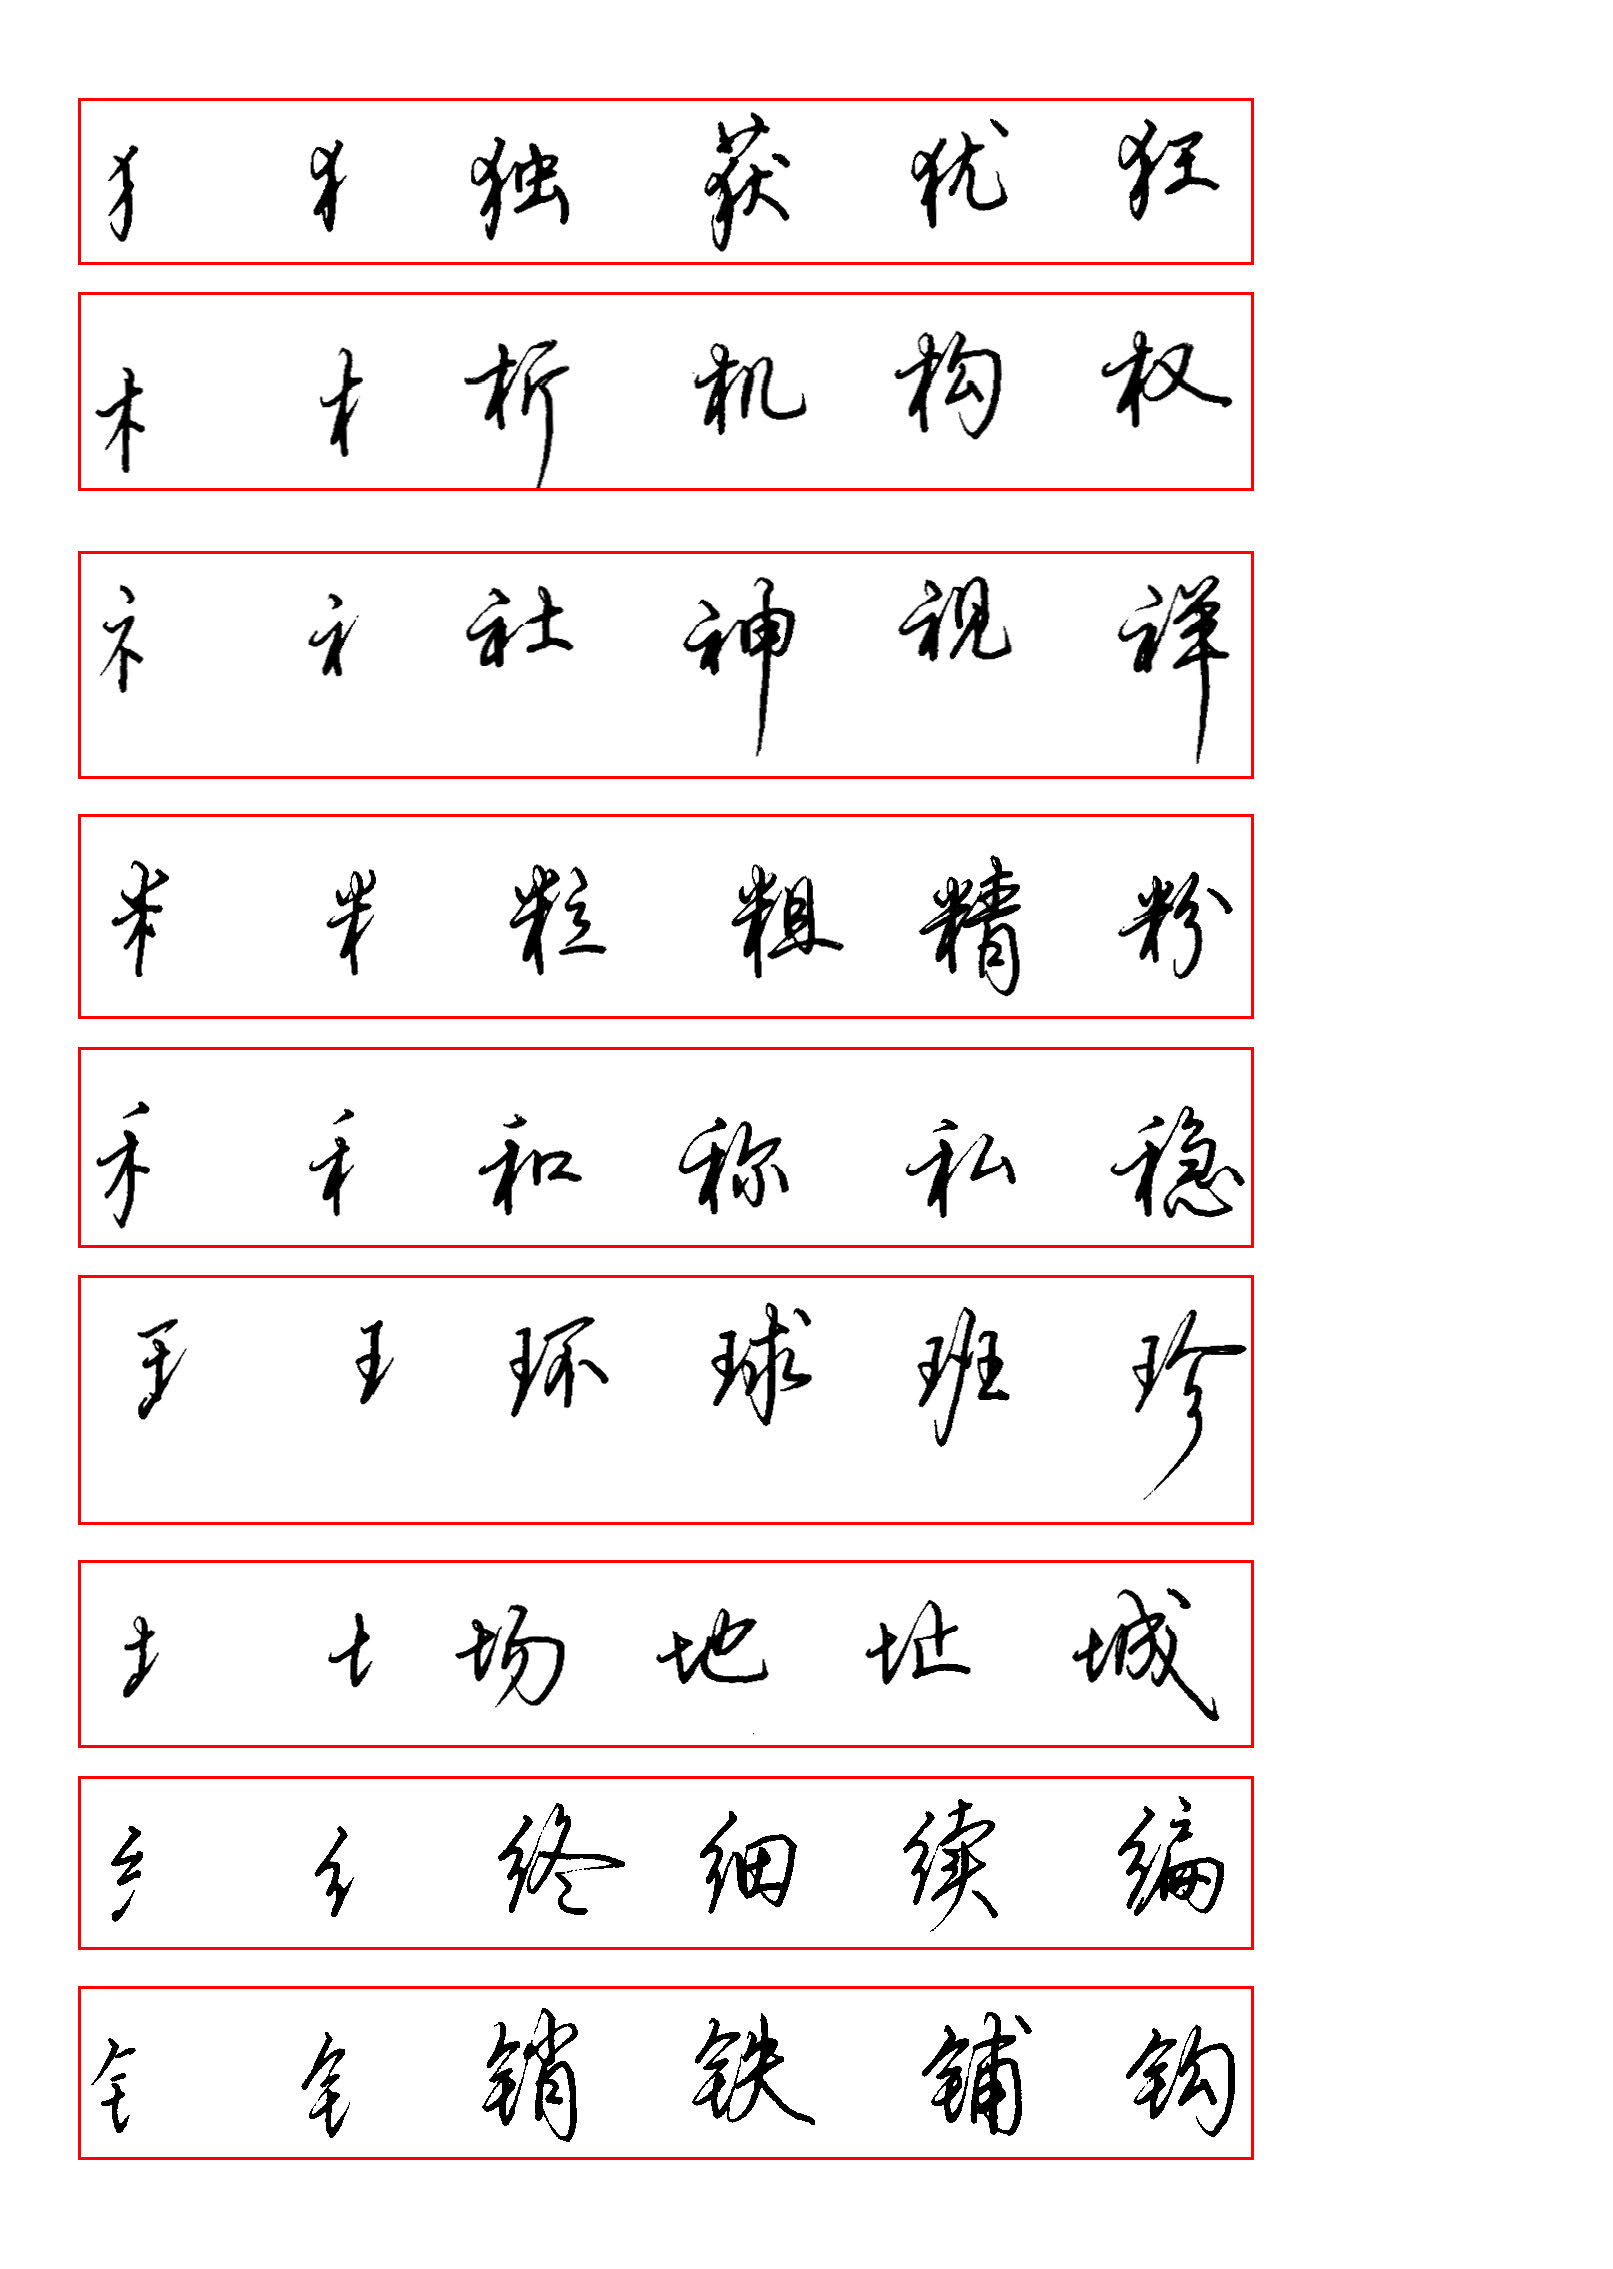 犭 犭 独 获 犹 狂
木 木 析 机 构 权
礻 礻 社 神 视 祥
米 米 粒 粗 精 粉
禾 禾 和 称 私 稳
王 王 环 球 班 珍
土 土 场 地 址 城
纟 纟 终 细 续 编
钅 钅 销 铁 铺 钩